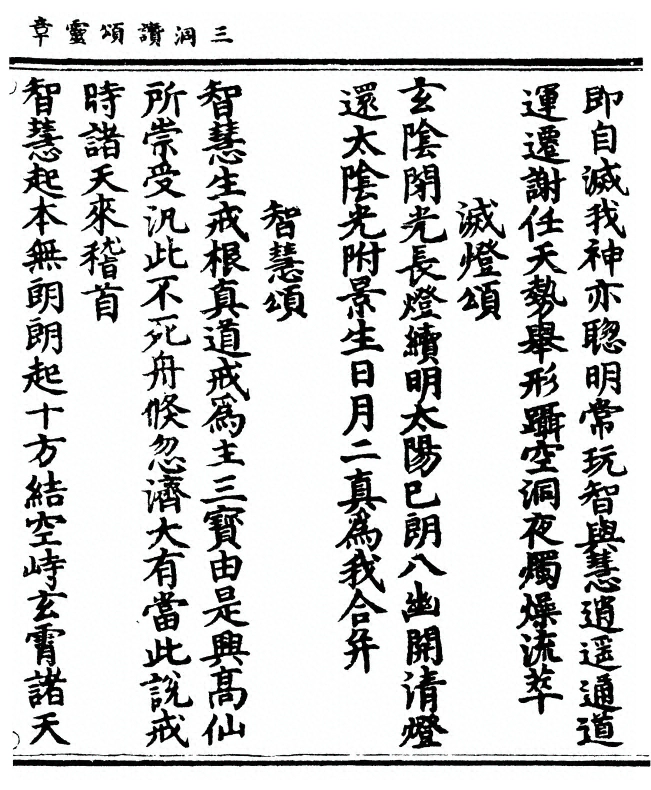 三洞讚頌靈章
即自滅我神亦聰明常玩智與慧逍遥通道
運遷謝任天勢舉形躡空洞夜燭燥流萃
滅燈頌
玄陰閉光長燈續明太陽巳朗八幽開清燈
還太陰光附景生日月二真為我合并
智慧頌
智慧生戒根真道戒為主三寶由是興高仙
所崇受汎此不死舟倐忽濟大有當此說戒
時諸天來稽首
智慧起本無朗朗起十方結空峙玄霄諸天